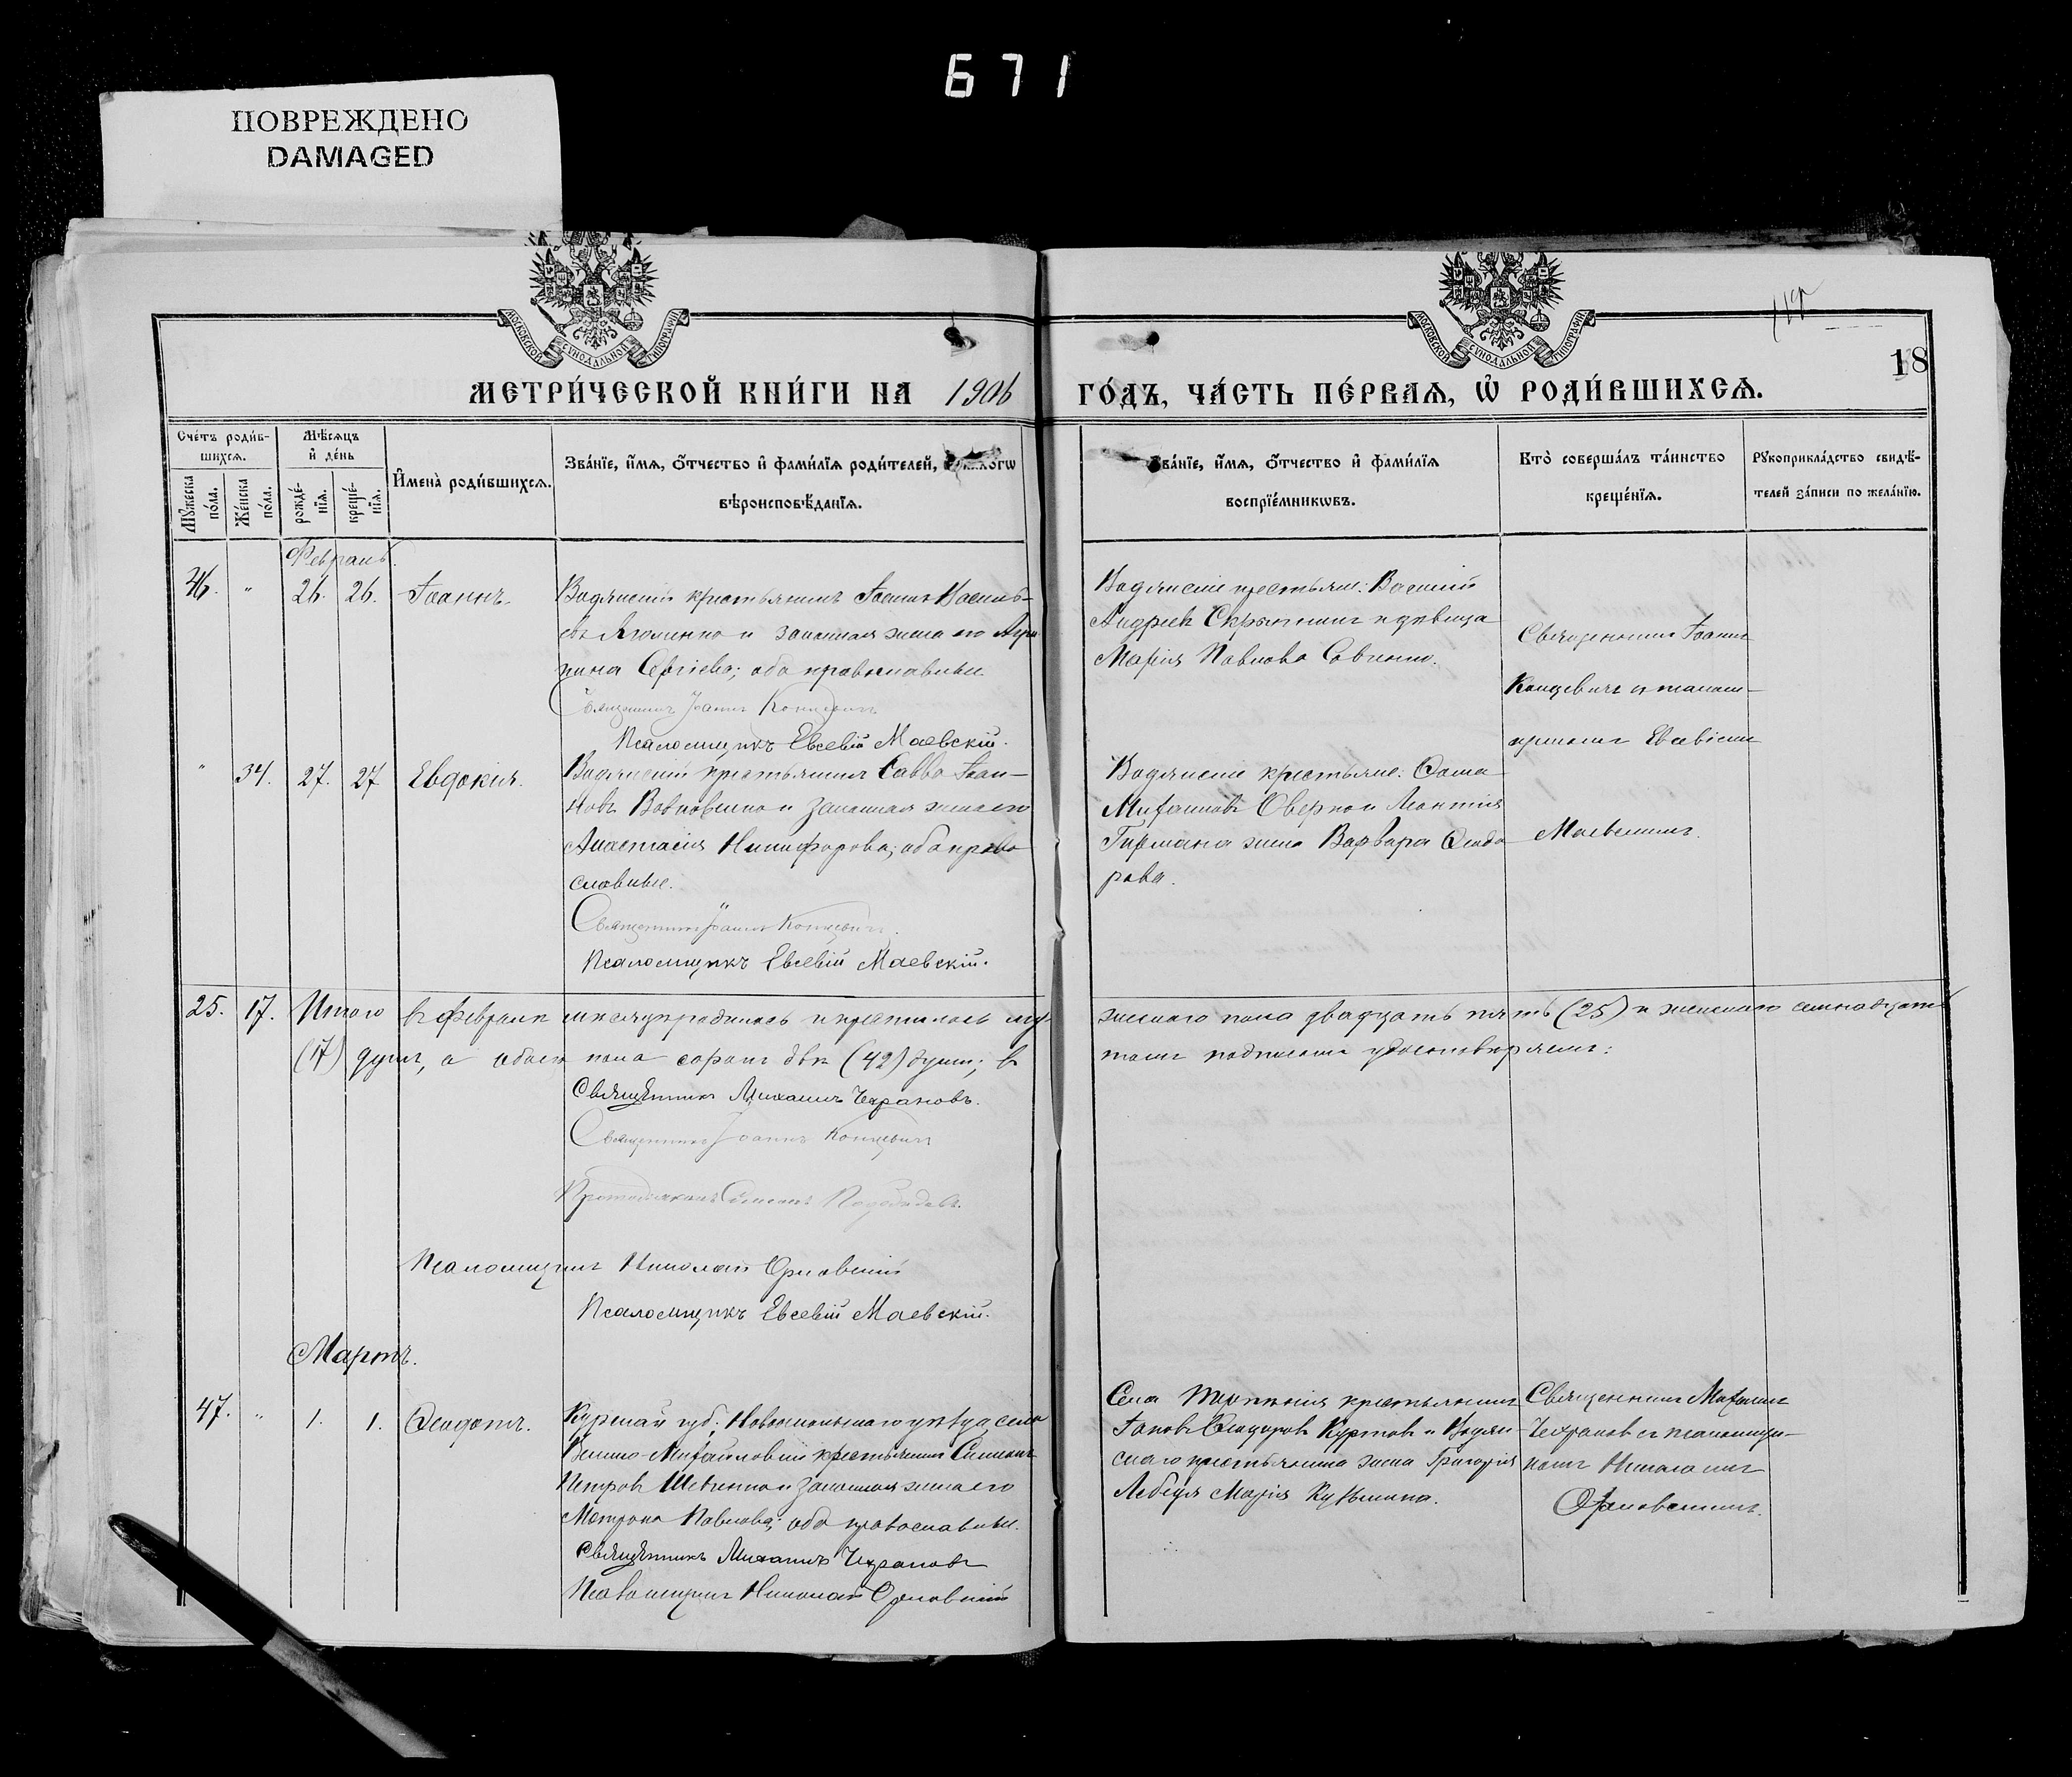 671
ПОВРЕЖДЕНО
DAMAGED
МОСКОВСКОЙ СѴНОДАЛЬНОЙ ТИПОГРАФІИ
МОСКОВСКОЙ СѴНОДАЛЬНОЙ ТИПОГРАФІИ
18
МЕТРИ́ЧЕСКОЙ КНИ́ГИ НА 1906 ГО́ДЪ, ЧА́СТЬ ПЕ́РВАѦ, Ѡ҆ РОДИ́ВШИХСѦ.
Сче́тъ роди́в-
шихсѧ.
Мꙋ́жеска по́ла.
Же́нска по́ла.
Мѣ́сѧцъ
и҆ де́нь
рожде́-
нїѧ.
креще́-
нїѧ.
И҆мена̀ роди́вшихсѧ.
Зва́нїе, и҆́мѧ, ѻ҆́тчество и҆ фами́лїѧ роди́телей,
вѣроисповѣ́данїѧ.
Зва́нїе, и҆́мѧ, ѻ҆́тчество и҆ фами́лїѧ
воспрїе́мникѡвъ.
Кто̀ соверша́лъ та́инство
креще́нїѧ.
Рꙋкоприкла́дство свидѣ́-
телей за́писи по жела́нїю.
Февраль.
46. " 26. 26. Іоаннъ.
Водянскій крестьянинъ Іоаннъ Василь-
евъ и законная жена его Агри-
пина Сергіева; оба православные.
Священникъ Іоаннъ Концевичъ
Псаломщикъ Евсевій Маевскій.
Водянскіе крестьяне: Василій
Андреевъ и девица
Марія Павлова Савенко.
Священникъ Іоаннъ
Концевичъ съ псалом-
щикомъ Евсевіемъ
Маевскимъ.
" 34. 27. 27 Евдокія.
Водянскій крестьянинъ Савва Іоан-
новъ Вовковенко и законная жена его
Анастасія Никифорова; оба право-
славные.
Священникъ Іоаннъ Концевичъ.
Псаломщикъ Евсевій Маевскій.
Водянскіе крестьяне: Ѳома
Михаиловъ и Леонтія
жена Варвара Ѳеодо-
рова.
25. 17. Итого въ Февралѣ мѣсяцѣ родилось и крестилось му-
жескаго пола двадцать пять (25) и женскаго семнадцать
(17) душъ, а обоего пола сорокъ двѣ (42) души; въ
томъ подписомъ удостовѣряемъ:
Священникъ Михаилъ Чехрановъ.
Священникъ Іоаннъ Концевичъ
Протодіаконъ Симеонъ
Псаломщикъ Николай Орловскій
Псаломщикъ Евсевій Маевскій.
Мартъ.
47. " 1. 1. Ѳеодотъ.
Курской губ. Новооскольскаго уѣзда села
Велико-Михайловки крестьянинъ Симеонъ
Петровъ Шевченко и законная жена его
Матрона Павлова; оба православные.
Священникъ Михаилъ Чехрановъ
Псаломщикъ Николай Орловскій
Села крестьянинъ
Іаковъ Ѳеодоровъ Куртовъ и Водян-
скаго крестьянина жена Григорія
Лебедя Марія Кузьмина.
Священникъ Михаилъ
Чехрановъ съ псаломщи-
комъ Николаемъ
Орловскимъ.